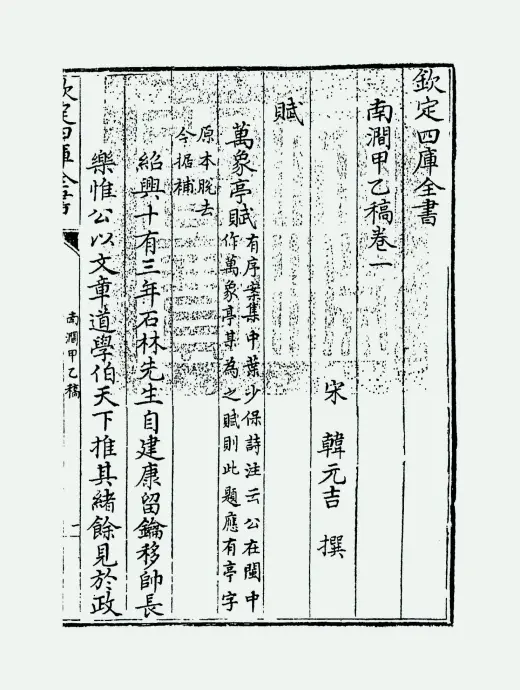 欽定四庫全書
南澗甲乙稿卷一
宋 韓元吉 撰
賦
萬象亭賦
有序案集中葉少保詩注云公在閩中
作萬象亭某為之賦則此題應有亭字
原本脫去
今据補
紹興十有三年石林先生自建康留鑰移帥長
樂惟公以文章道學伯天下推其緒餘見於政
欽定四庫全書
南澗甲乙稿
一